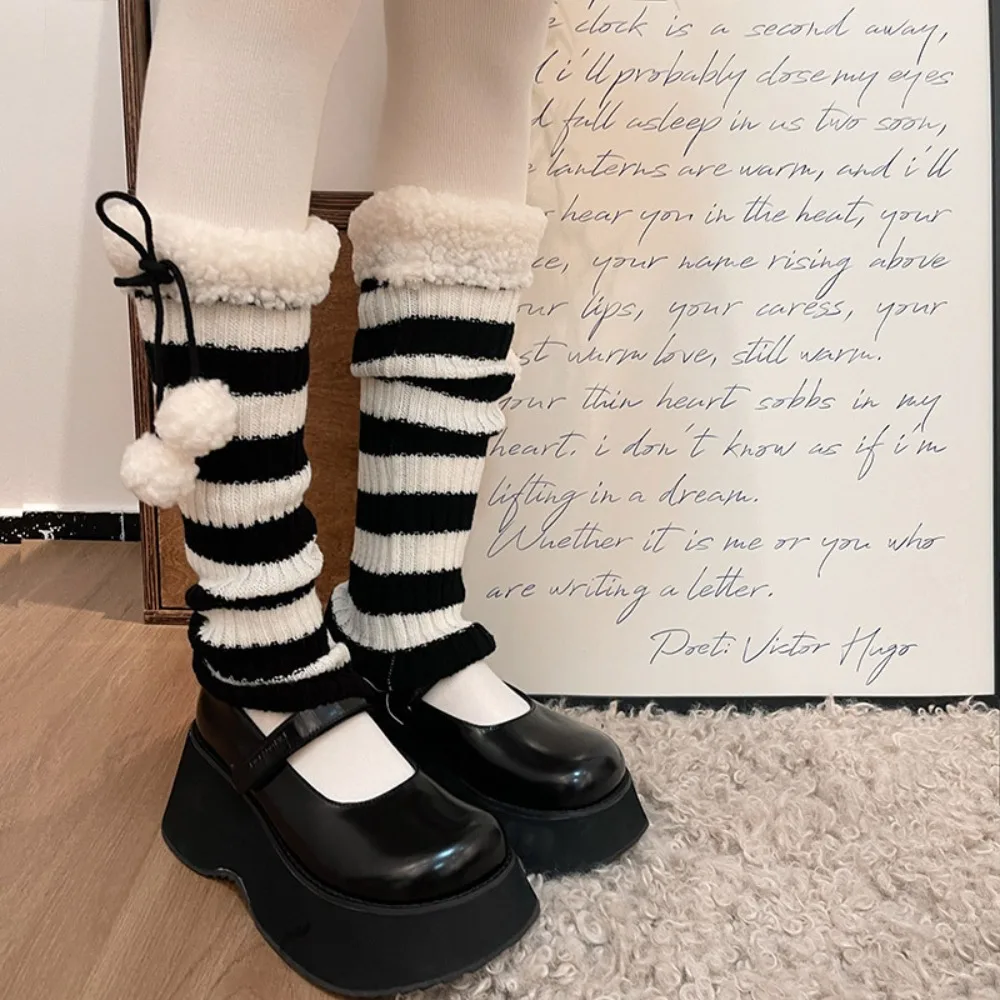 clock is a second away,
i'll probably close my eyes
fall asleep in us two soon,
lanterns are warm, and i'll
hear you in the heat, your
your name rising above
lips, your caress, your
warm love, still warm.
thin heart sobbs in my
heart. i don't know as if i'm
lifting in a dream.
Whether it is me or you who
are writing a letter.
Poet: Victor Hugo